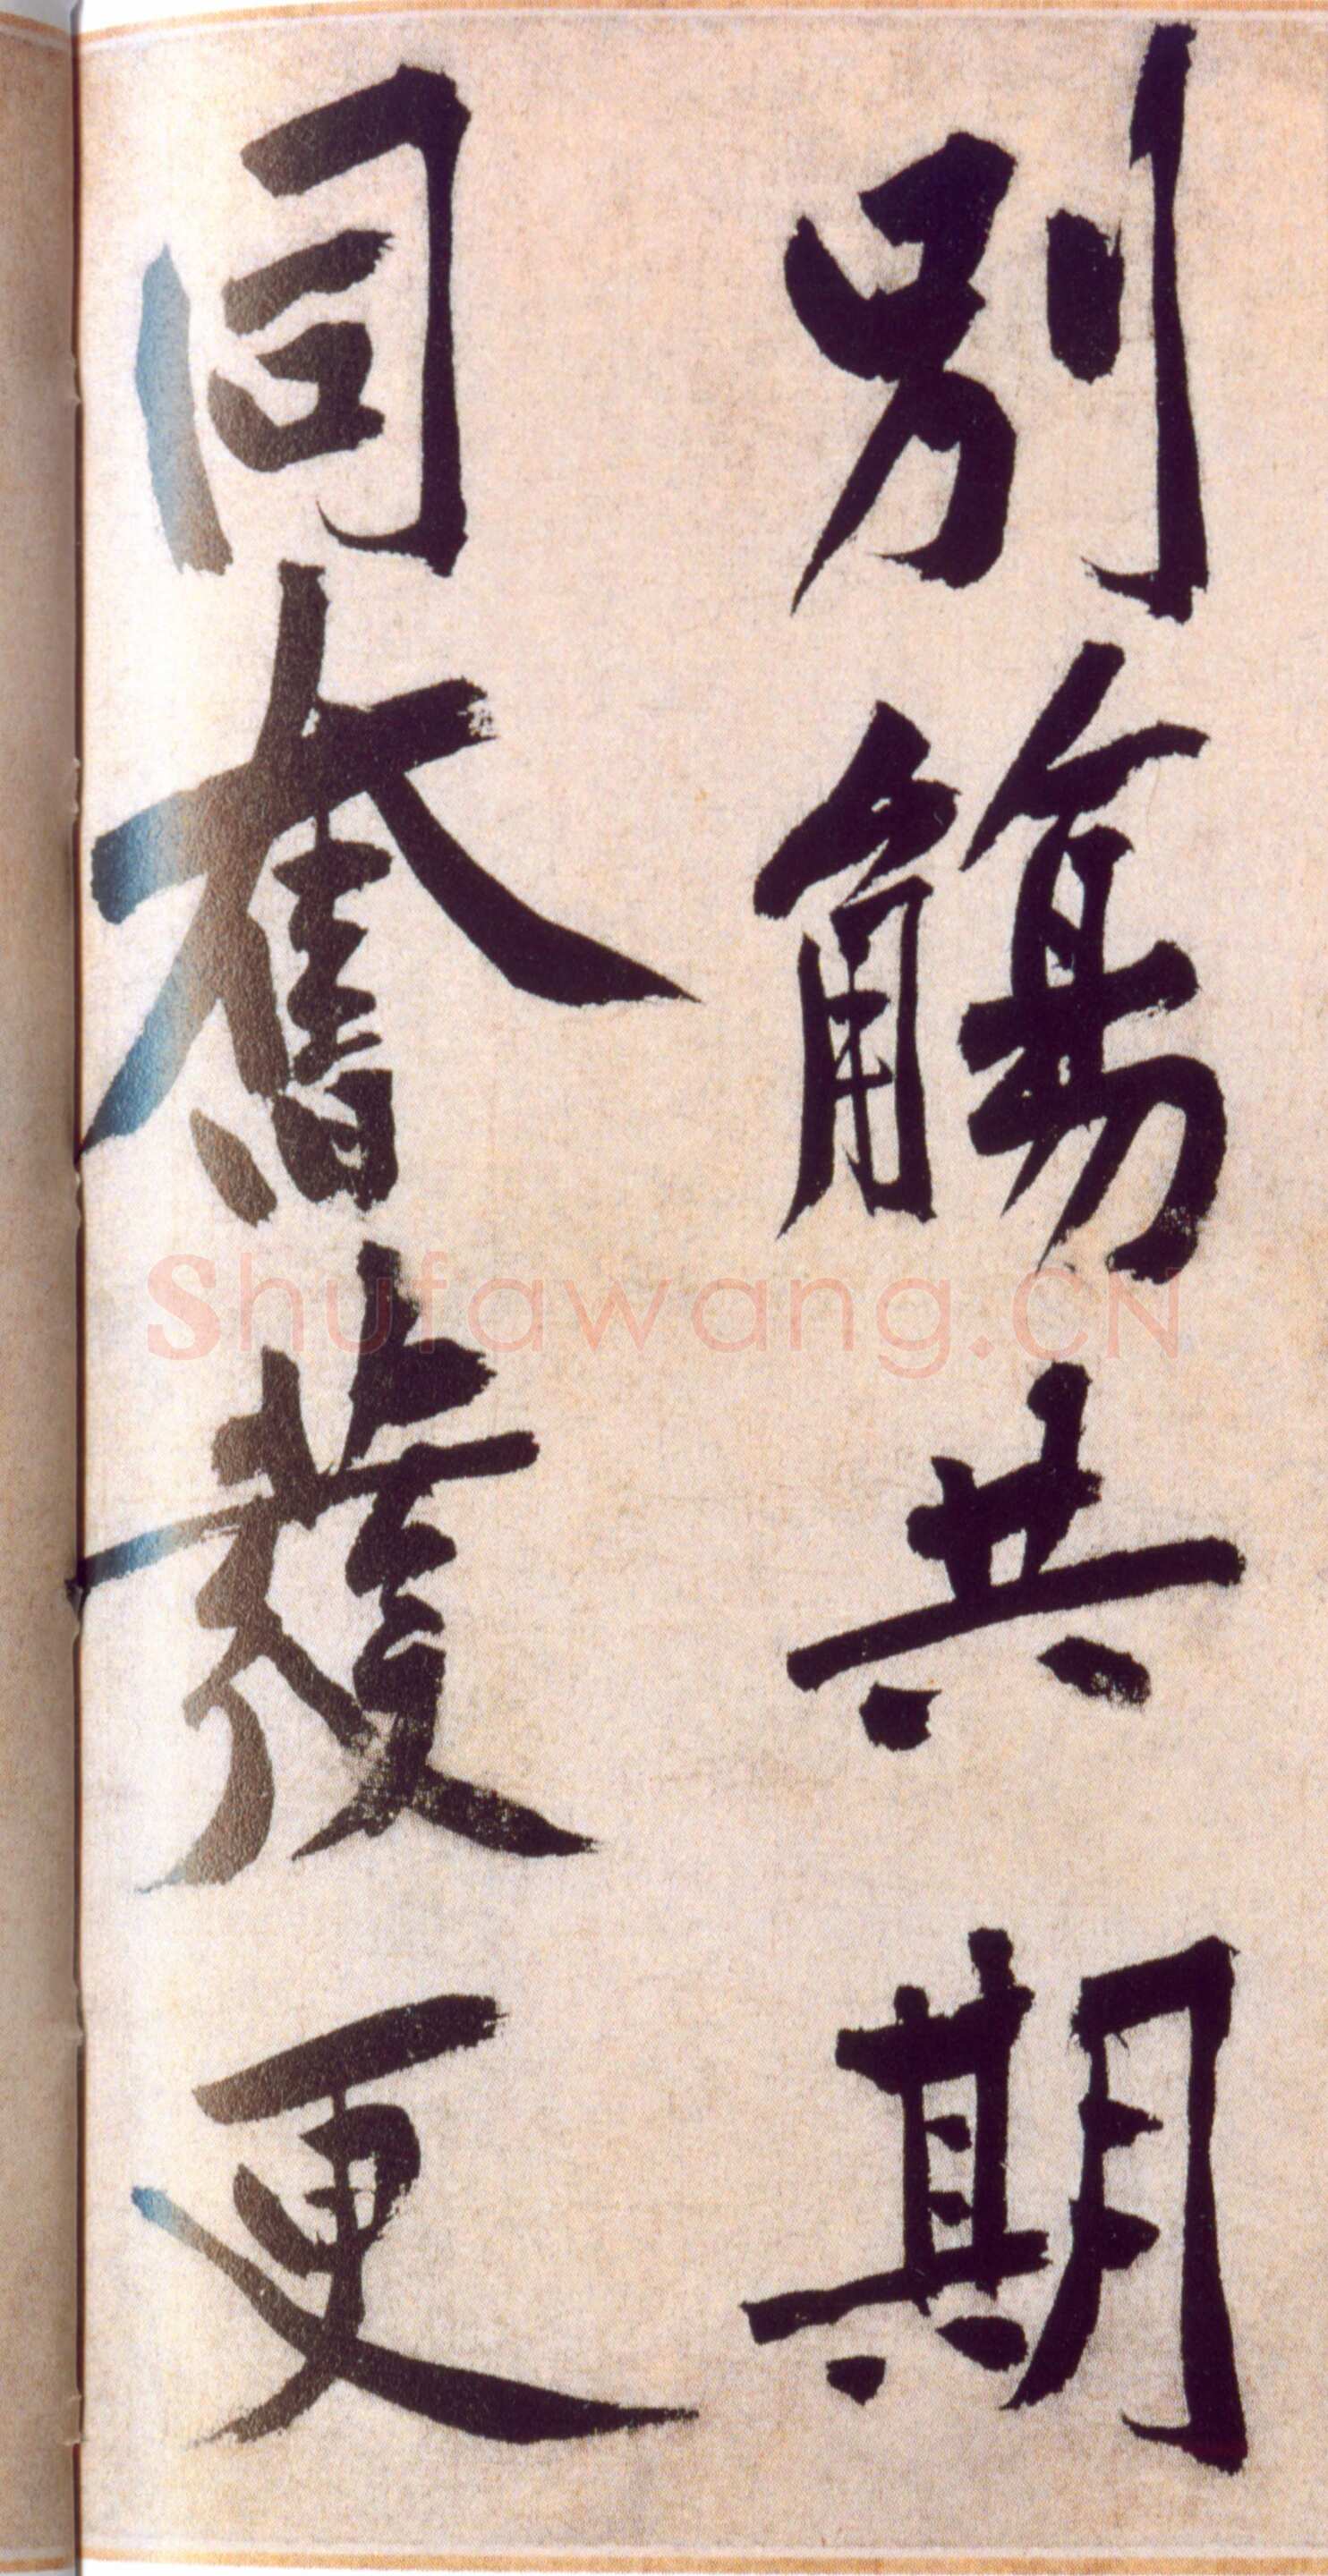 別觴共期
同奮發更
Shufawang.CN